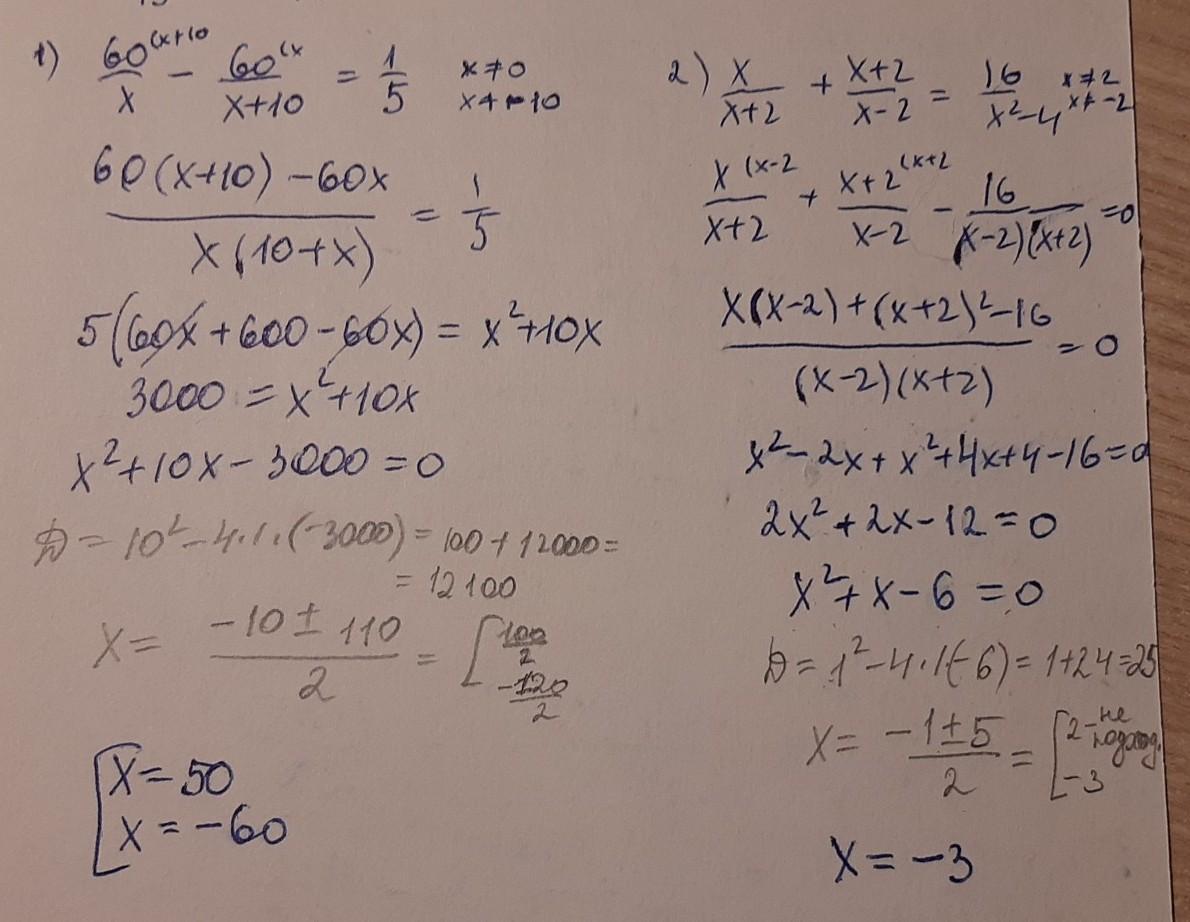 1) 60(x+10/x − 60(x/x+10 = 1/5 x≠0 x≠−10
60(x+10)−60x/x(10+x) = 1/5
5(60x+600−60x) = x²+10x
3000 = x²+10x
x²+10x−3000=0
D = 10²−4·1·(−3000) = 100+12000=
= 12100
x = −10±110/2 = [100/2 −120/2
[x=50
x=−60
2) x/x+2 + x+2/x−2 = 16/x²−4 x≠2 x≠−2
x(x−2/x+2 + x+2(x+2/x−2 − 16/(x−2)(x+2) =0
x(x−2)+(x+2)²−16/(x−2)(x+2) = 0
x²−2x+x²+4x+4−16=0
2x²+2x−12=0
x²+x−6=0
D = 1²−4·1(−6) = 1+24=25
x = −1±5/2 = [2 − не подход. −3
x = −3